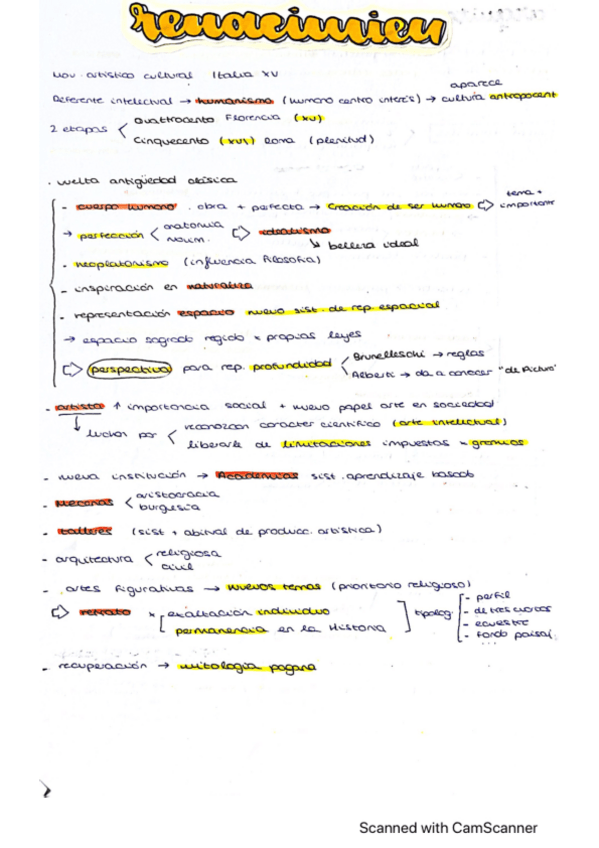 renacimien
Mov. artístico cultural Italia XV
aparece
Referente intelectual → humanismo (humano centro interés) → cultura antropocent
2 etapas
Quattrocento Florencia (XV)
Cinquecento (XVI) Roma (plenitud)
. vuelta antigüedad clásica
- cuerpo humano . obra + perfecta → Creación de ser humano ⇨ tema + importante
→ perfección < anatomía
⇨ idealismo
↘ belleza ideal
- neoplatonismo (influencia filosofía)
- inspiración en naturaleza
- representación espacio nuevo sist. de rep. espacial
→ espacio sagrado regido x propias leyes
⇨ perspectiva para rep. profundidad
Brunelleschi → reglas
Alberti → da a conocer "de Pictura"
- artista ↑ importancia social + nuevo papel arte en sociedad
↓ luchan por
reconozcan caracter científico (arte intelectual)
liberarle de limitaciones impuestas x gremios
- nueva institución → Academias sist. aprendizaje basado
- Mecenas
aristocracia
burguesía
- talleres (sist + abitual de producc. artística)
- arquitectura
religiosa
civil
- artes figurativas → nuevos temas (prioritario religioso)
⇨ retrato x
exaltación individuo
permanencia en la Historia
tipolog
- perfil
- de tres cuartos
- ecuestre
- fondo paisaj.
- recuperación → mitología pagana
Scanned with CamScanner